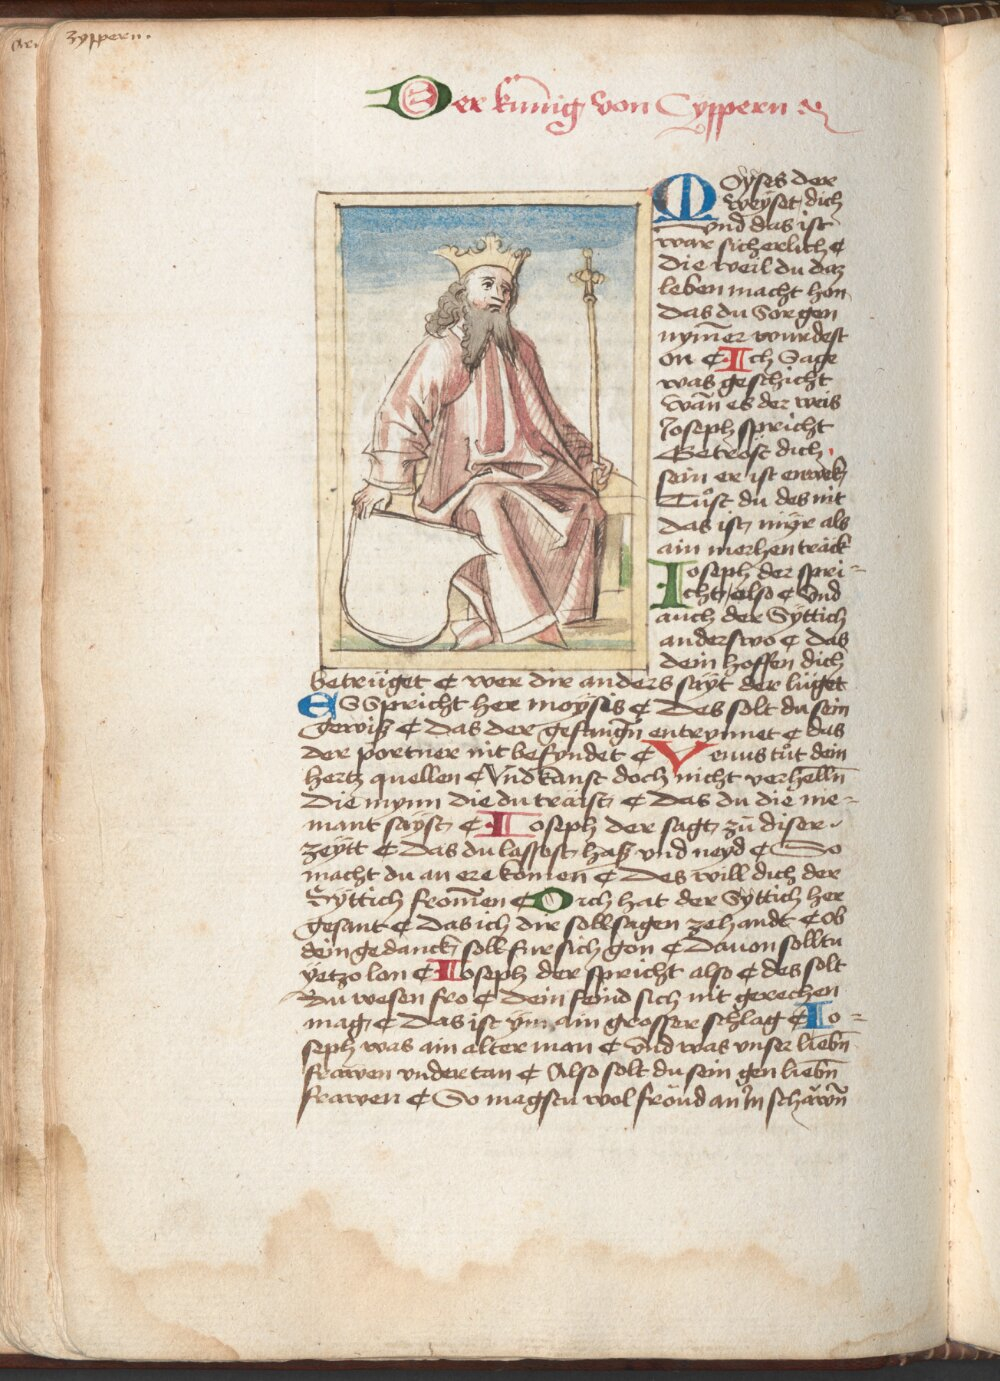 Zyppern.
Der kunig von Cyppern
Moyses der
weyset dich
vnd das ist
war sicherlich ¢
die weil du daz
leben macht hon
das du Sorgen
nym̃er wurdest
on ¢ Ich Sage
was geschicht
Wān es der weis
Joseph spricht
Getröst dich
sein er ist enwek
Tůst du des nit
das ist mÿr als
ain merhen träck
Joseph der spri-
cht also ¢ Vnd
auch der Sÿttich
anderswo ¢ das
dein hoffen dich
betrüget ¢ wer dir anders sayt der lüget
ES Spricht her moysis ¢ Des solt du sein
gewiß ¢ das der gefangñ entrynnet ¢ das
der portner nit befyndet ¢ Venus tůt dein
hertz quellen ¢ Vnd kanst doch nicht verhelln̄
Die mynn die du traist ¢ das du die nie-
mant sayst ¢ Joseph der sagt zů diser
zeytt ¢ das du lassost haß vnd neyd ¢ So
macht du an ere komen ¢ Des will dich der
Syttich from̄en ¢ Dich hat der Syttich her
gesant ¢ das ich dir soll sagen zehandt ¢ ob
dein gedanck soll fur sich gon ¢ dauon solltu
yetzo lon ¢ Joseph der spricht also ¢ des solt
du wesen fro ¢ dein feind sich nit gerechen
mag ¢ das ist ym ain grosser schlag ¢ Jo-
seph was ain alter man ¢ Vnd was vnser liebn̄
frawen vndertan ¢ Also solt du sein gen liebn̄
frawen ¢ So magstu wol fröud an Im schäwn̄